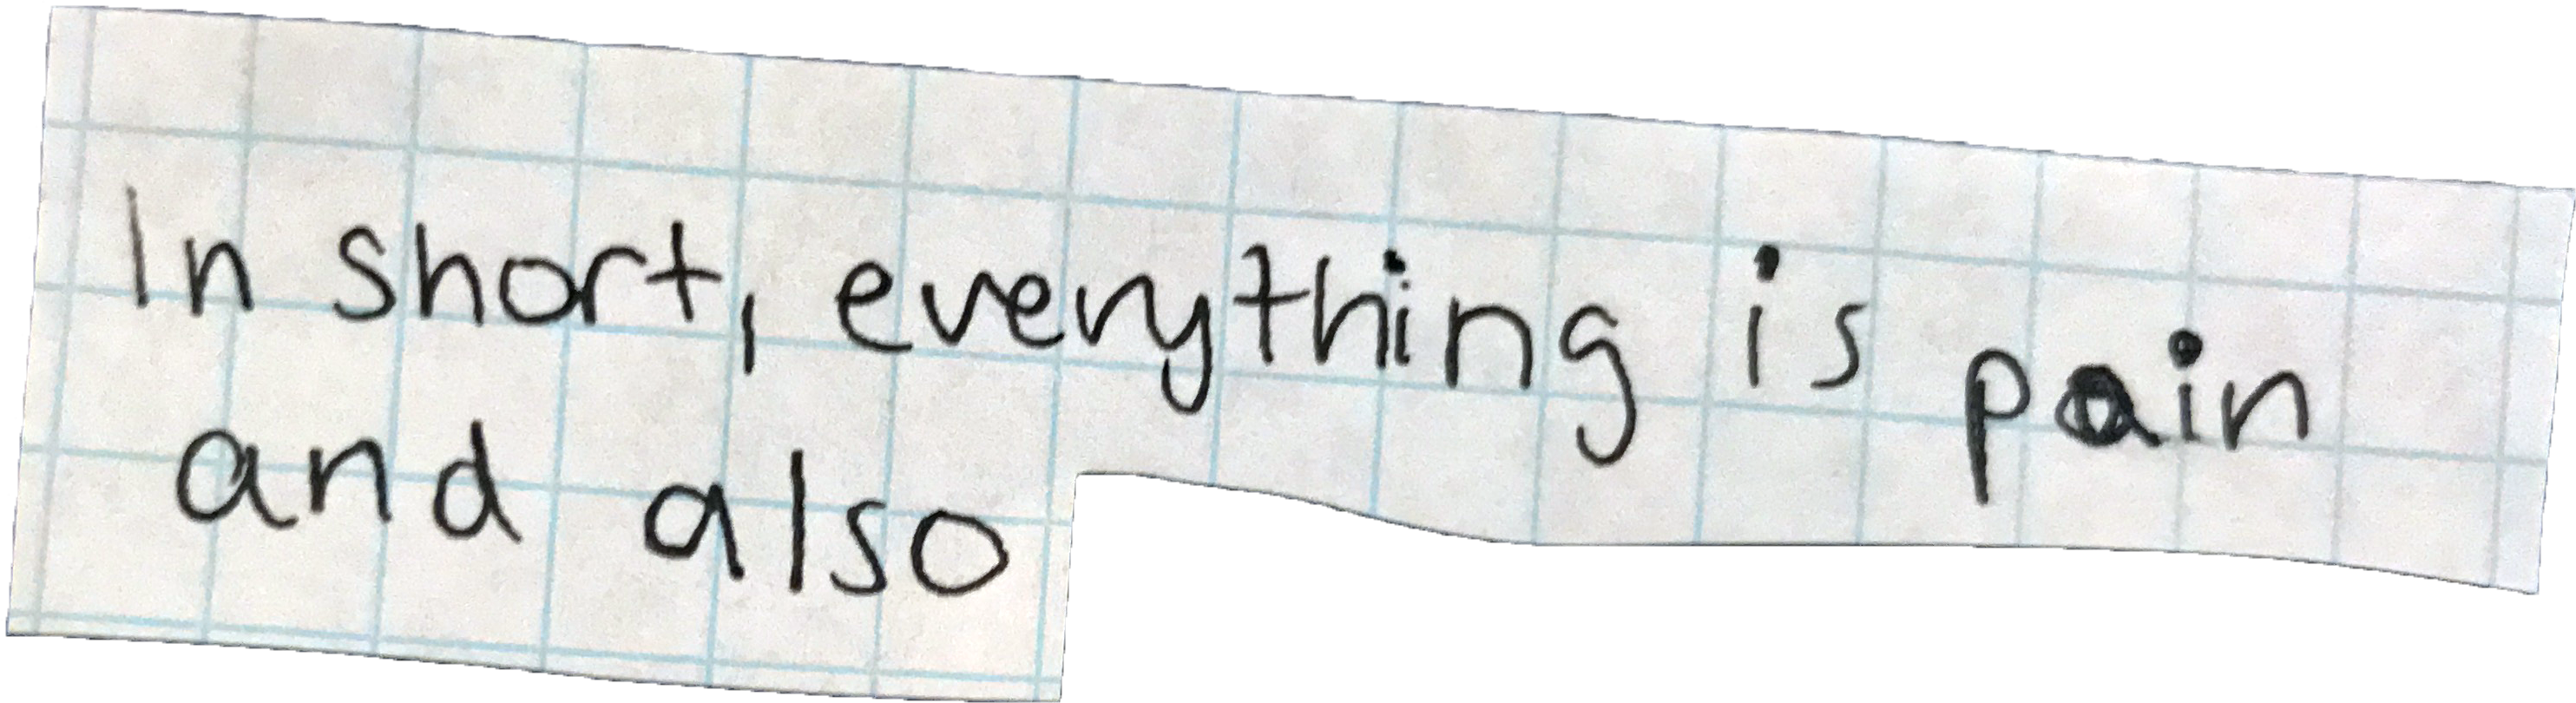 In short, everything is pain
and also